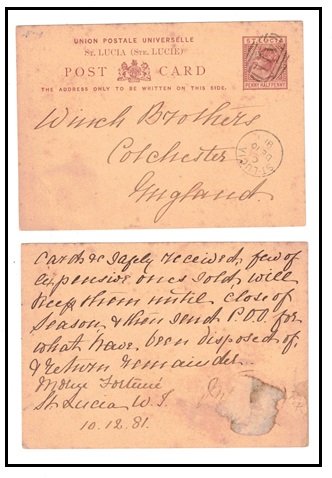 UNION POSTALE UNIVERSELLE
ST. LUCIA (STE. LUCIE)
POST CARD
THE ADDRESS ONLY TO BE WRITTEN ON THIS SIDE.
ST. LUCIA
PENNY HALFPENNY
Winch Brothers
Colchester
England
ST. LUCIA
Cards &c safely received, few of
expensive ones sold, will
keep them until close of
Season, & then send P.O.O. for
what have been disposed of,
& return remainder.
Morne Fortune
St. Lucia W.I.
10.12.81.